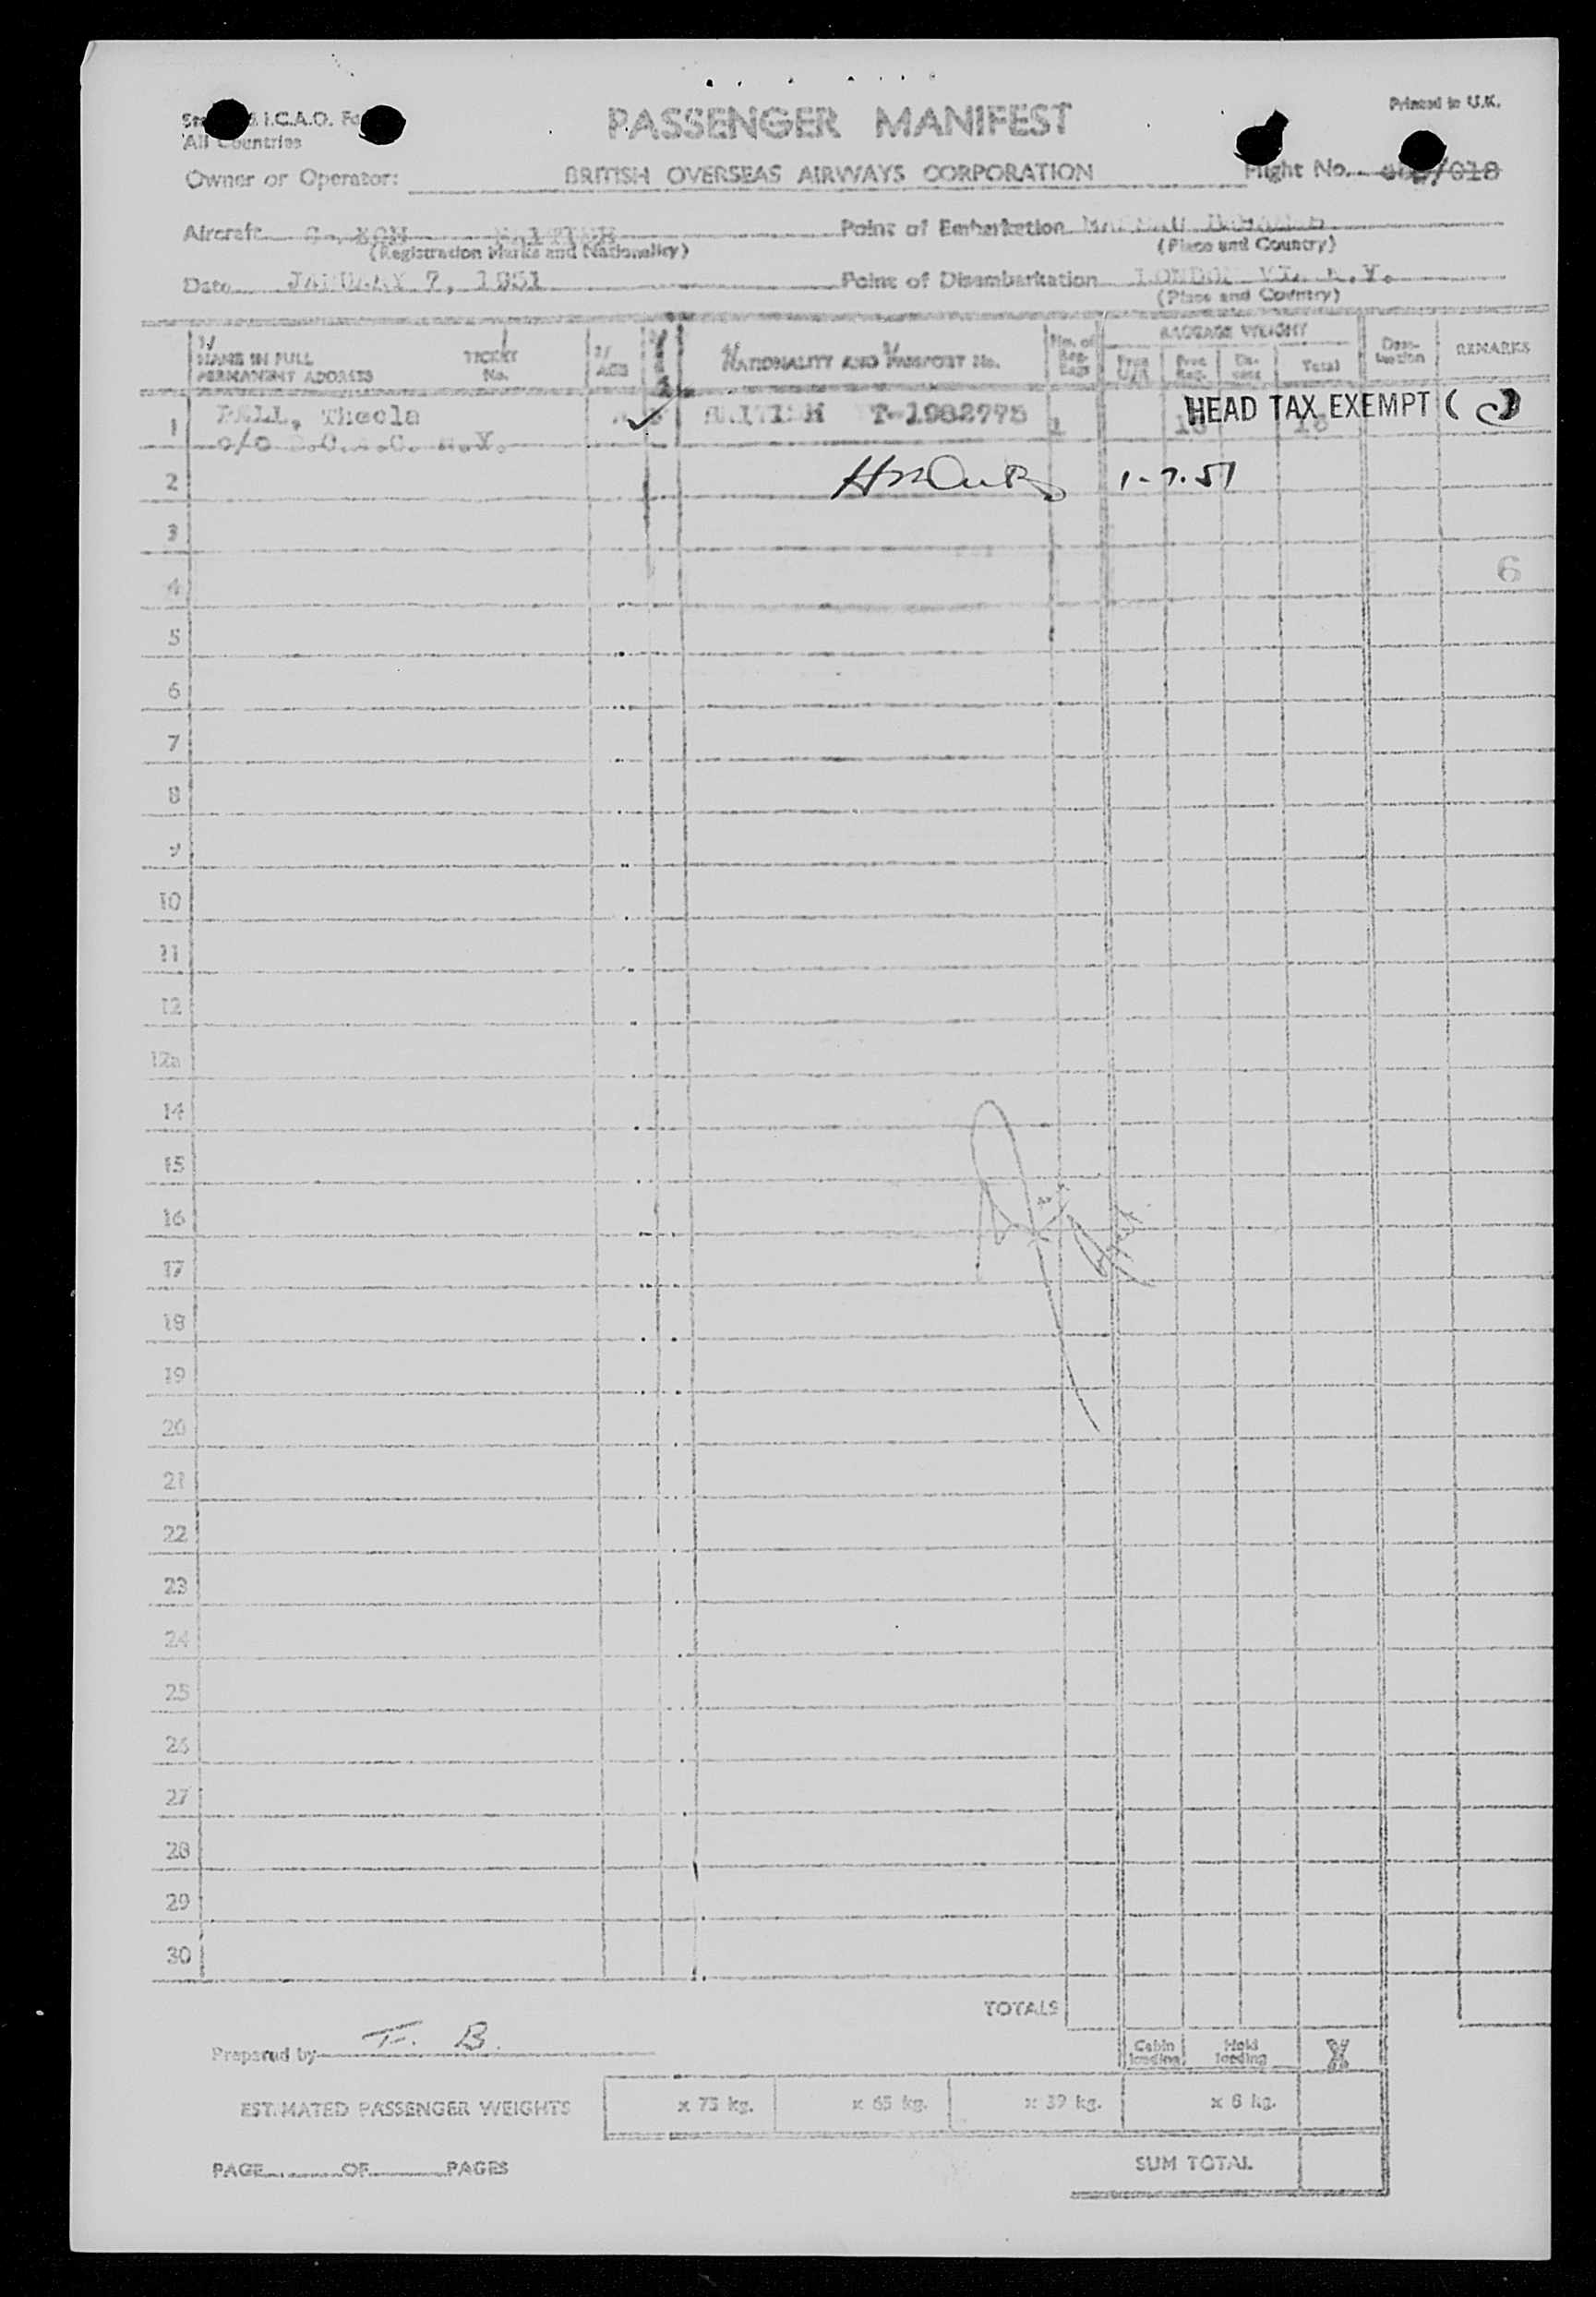 I.C.A.O.
All Countries
PASSENGER MANIFEST
Printed in U.K.
Owner or Operator: BRITISH OVERSEAS AIRWAYS CORPORATION Flight No. /018
Aircraft Point of Embarkation
(Registration Marks and Nationality) (Place and Country)
Date JANUARY 7, 1951 Point of Disembarkation LONDON VIA N.Y.
(Place and Country)
1/ NAME IN FULL PERMANENT ADDRESS TICKET No. 2/ AGE NATIONALITY AND PASSPORT No. No. of BAGGAGE WEIGHT Total Destination REMARKS
1 Thecla BRITISH T-1982775 1 HEAD TAX EXEMPT ( )
c/o B.O.A.C. N.Y.
2 1-7-51
3
4 6
5
6
7
8
9
10
11
12
12a
14
15
16
17
18
19
20
21
22
23
24
25
26
27
28
29
30
TOTALS
Prepared by F. B. Cabin loading Hold loading
ESTIMATED PASSENGER WEIGHTS x 75 kg. x 65 kg. x 39 kg. x 8 kg.
PAGE OF PAGES SUM TOTAL